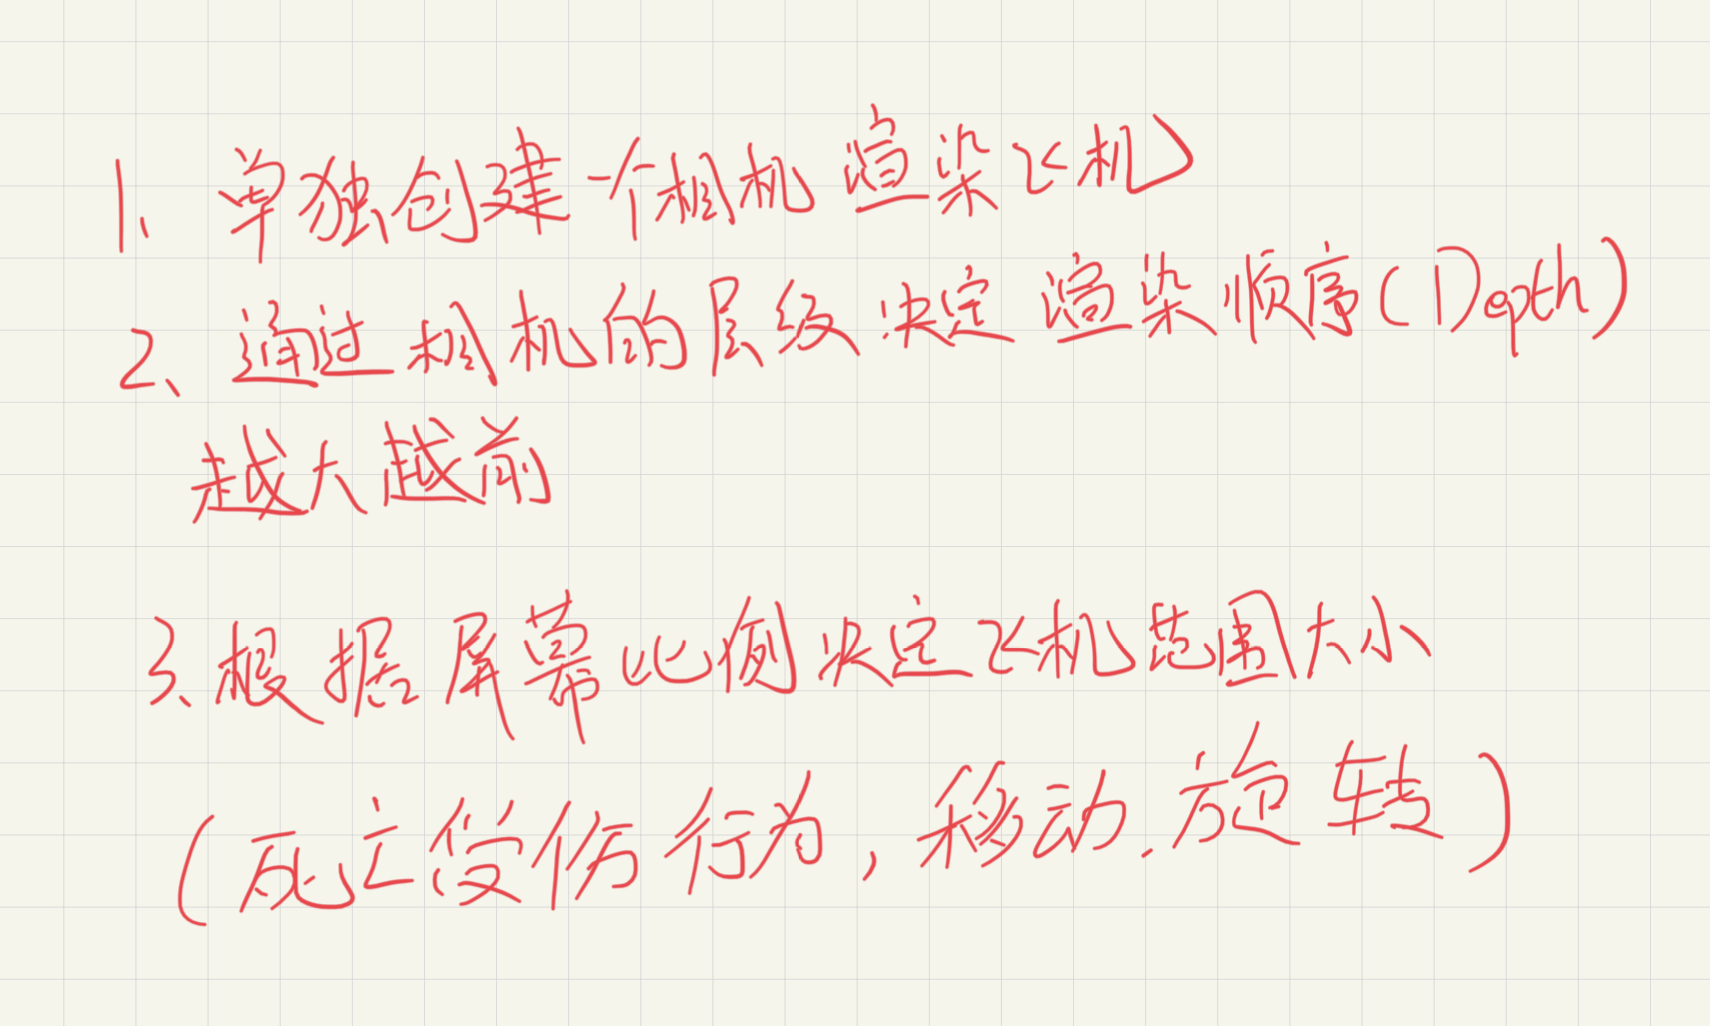 1、单独创建一个相机渲染飞机
2、通过相机的层级决定渲染顺序(Depth)
越大越前
3、根据屏幕比例决定飞机范围大小
(死亡受伤行为,移动.旋转)